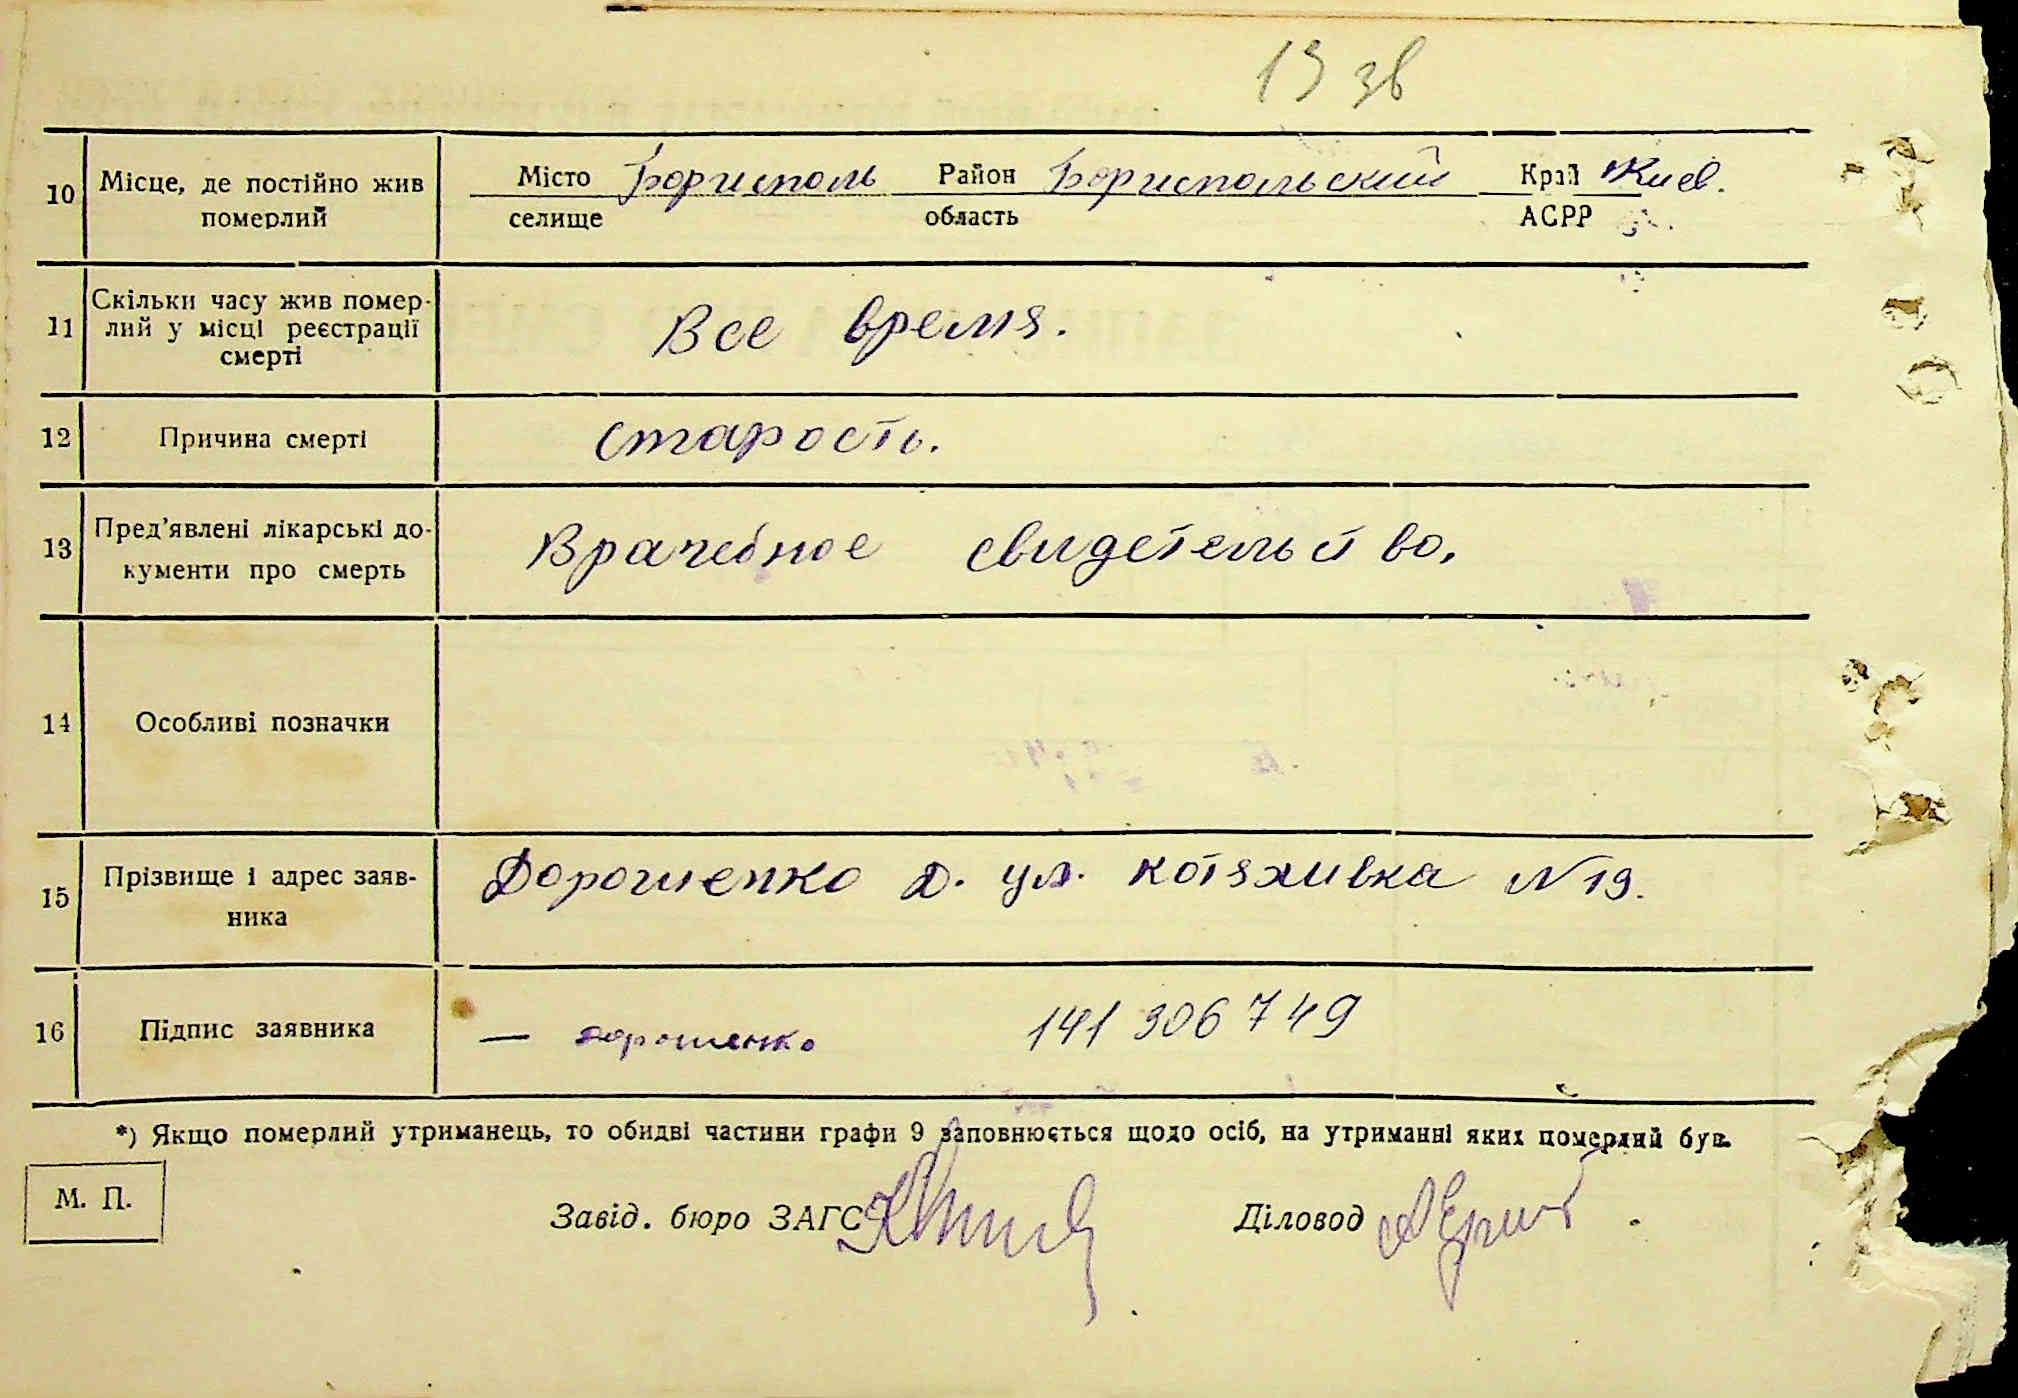 13 зв
10 Місце, де постійно жив померлий Місто Борисполь Район Бориспольский Край Киев.
селище область АСРР
11 Скільки часу жив помер-
лий у місці реєстрації
смерті
Все время.
12 Причина смерті Старость.
13 Пред'явлені лікарські до-
кументи про смерть
Врачебное свидетельство,
14 Особливі позначки
15 Прізвище і адрес заяв-
ника
Дорошенко Д. ул. Котяхивка N 19.
16 Підпис заявника — дорошенко 141 306 749
*) Якщо померлий утриманець, то обидві частини графи 9 заповнюється щодо осіб, на утриманні яких померлий був.
М. П.
Завід. бюро ЗАГС Діловод